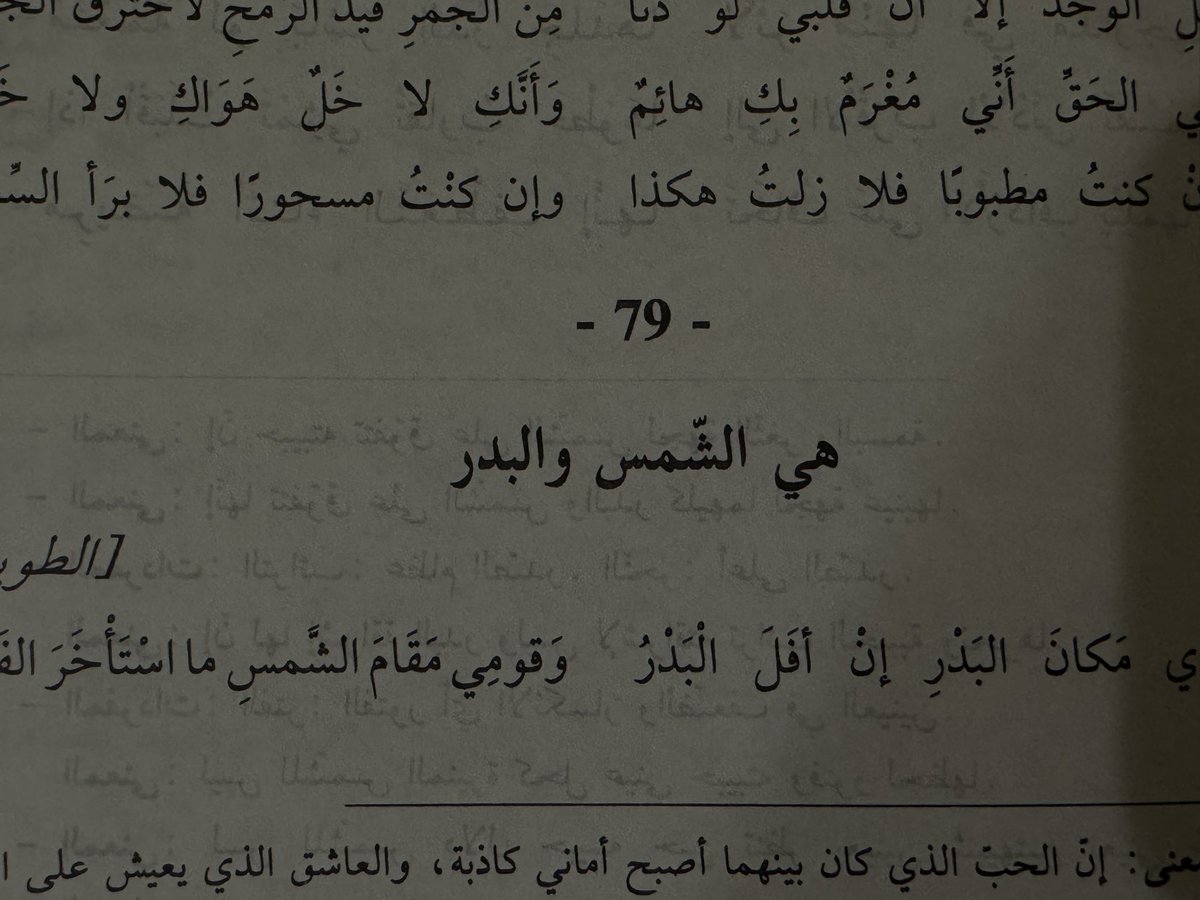 الوجد إلا أن قلبي لو دنا من الجمرِ قيد الرمحِ لاحترق
الحَقِّ أَنِّي مُغْرَمٌ بِكِ هائِمٌ وَأَنَّكِ لا خَلٌ هَوَاكِ ولا
كنتُ مطبوبًا فلا زلتُ هكذا وإن كنْتُ مسحورًا فلا برَأ
- 79 -
هي الشّمس والبدر
مَكانَ البَدْرِ إنْ أفَلَ الْبَدْرُ وَقومِي مَقَامَ الشَّمسِ ما اسْتَأْخَرَ
إنّ الحبّ الذي كان بينهما أصبح أماني كاذبة، والعاشق الذي يعيش على